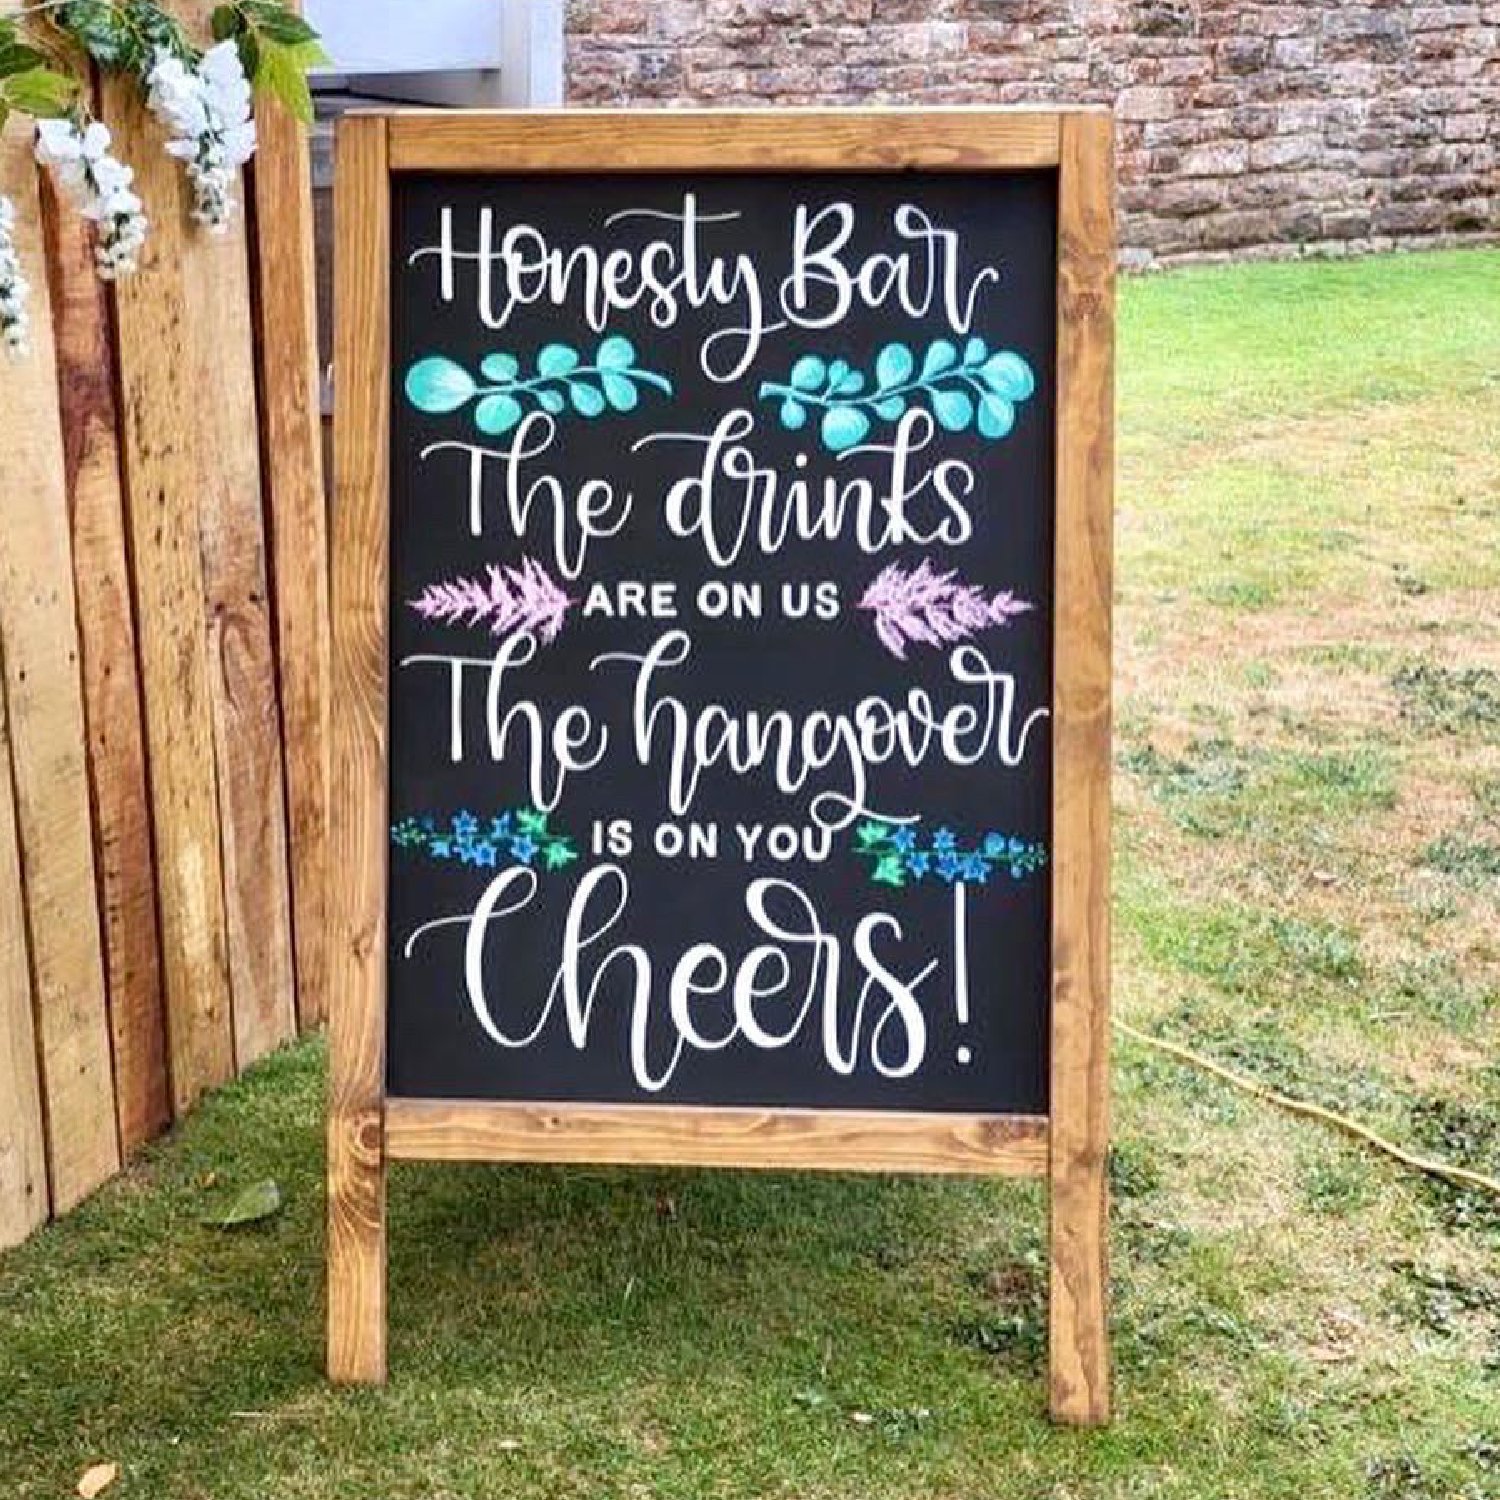 Honesty Bar
The drinks
ARE ON US
The hangover
IS ON YOU
Cheers!